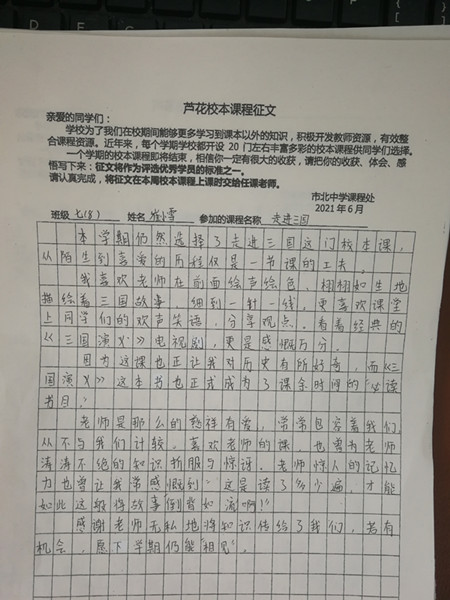 芦花校本课程征文
亲爱的同学们：
学校为了我们在校期间能够更多学习到课本以外的知识，积极开发教师资源，有效整
合课程资源。近年来，每个学期学校都开设 20 门左右丰富多彩的校本课程供同学们选择。
一个学期的校本课程即将结束，相信你一定有很大的收获，请把你的收获、体会、感
悟写下来：征文将作为评选优秀学员的标准之一。
请认真完成，将征文在本周校本课程上课时交给任课老师。
市北中学课程处
2021 年 6 月
班级 七(8) 姓名 雪 参加的课程名称 走进三国
本学期仍然选择了走进三国这门校本课，
从陌生到喜爱的历程仅是一节课的工夫。
我喜欢老师在前面绘声绘色、栩栩如生地
描绘着三国故事，细到一针一线，更喜欢课堂
上同学们的欢声笑语，分享观点。看着经典的
《三国演义》电视剧，更是感慨万分。
因为这课也正让我对历史有所好奇，而《三
国演义》这本书也正式成为了课余时间的“必读
书目”
老师是那么的慈祥有爱，常常包容着我们，
从不与我们计较。喜欢老师的课，也曾为老师
涛涛不绝的知识折服与惊讶。老师惊人的记忆
力也曾让我常感慨到“这是读了多少遍，才能
如此这般将故事倒背如流啊！”
感谢老师无私地将知识传给了我们，若有
机会，愿下学期仍能“相见”。